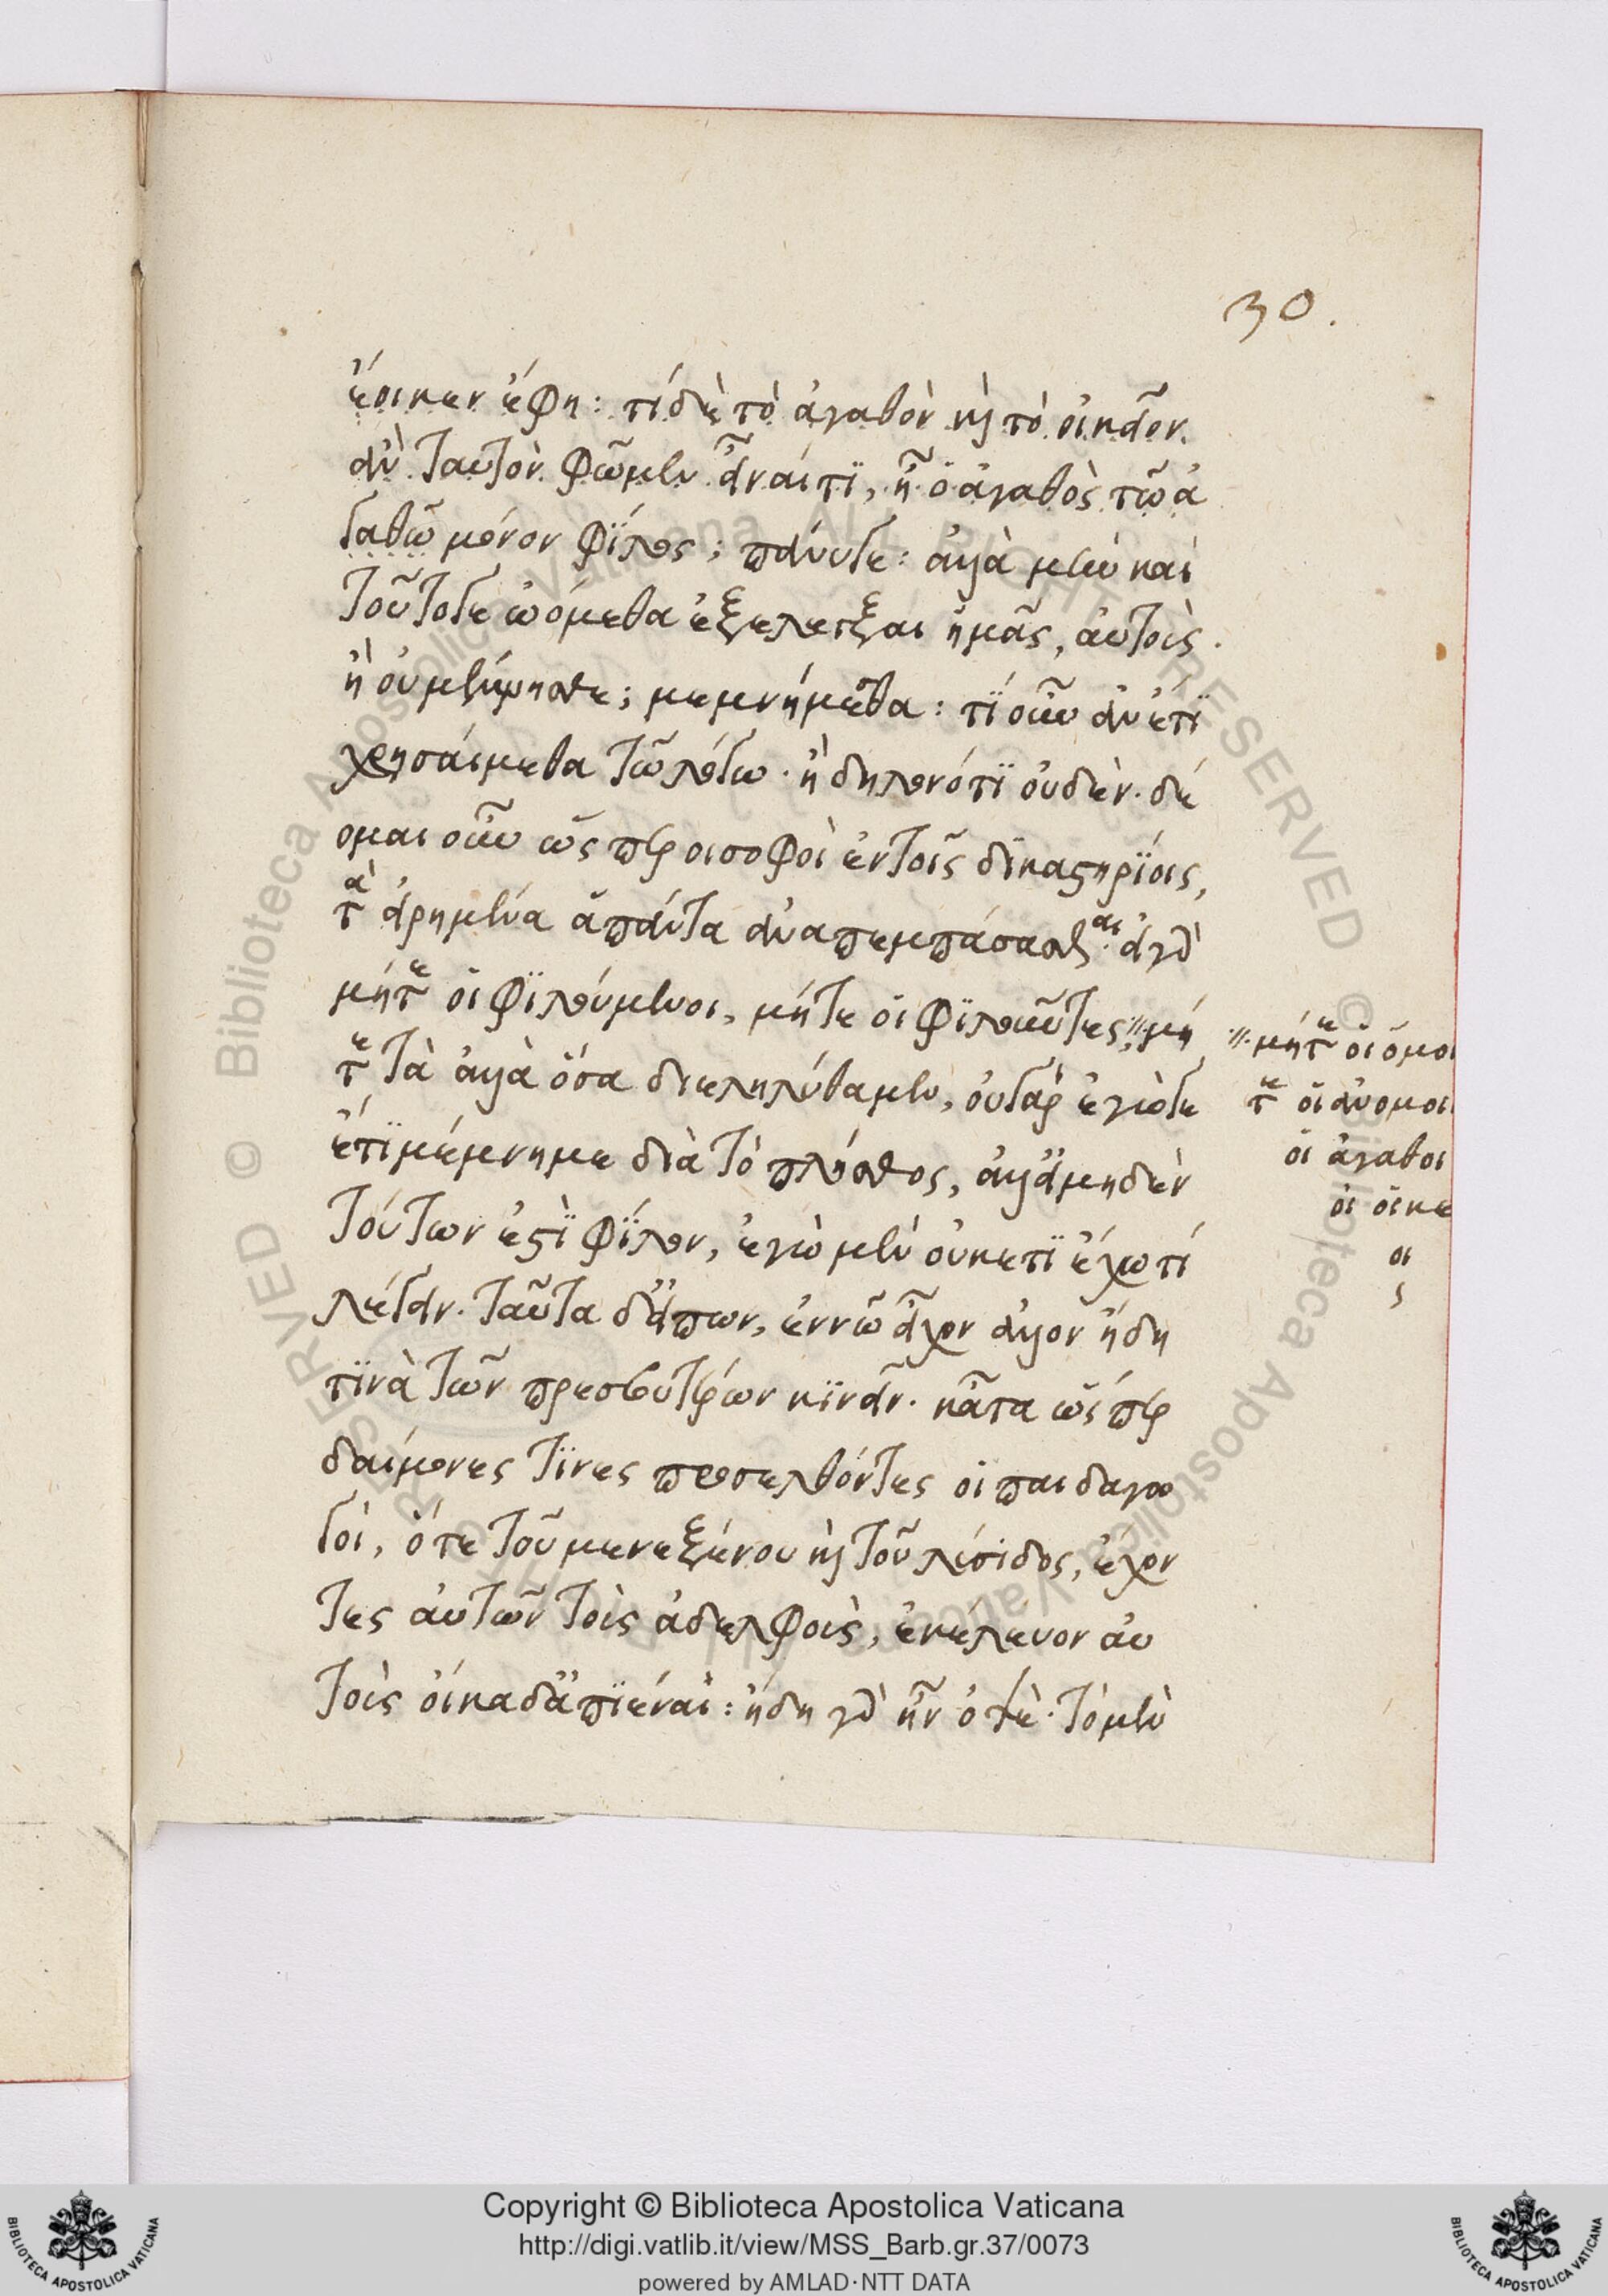 30.
ἔοικεν ἔφη: τί δὲ τὸ ἀγαθὸν καὶ τὸ οἰκεῖον
ἂν ταυτὸν φῶμεν εἶναί τϊ, ἢ ὁ ἀγαθὸς τῶ ἀ
γαθῶ μόνον φΐλος; πάνυγε: ἀλλὰ μὴν καὶ
τοῦτογε ὠόμεθα ἐξελεγξαι ἡμᾶς, αὐτοὺς.
ἢ οὐ μέμνησθε; μεμνήμεθα: τΐ οὖν ἂν ἔτϊ
χρησάιμεθα τῶ λόγω. ἢ δηλονότϊ οὐδὲν. δέ
ομαι οὖν ὥς περ οἱ σοφοὶ ἐν τοῖς δϊκαστηρΐοις,
τὰ εἰρημένα ἅπάντα ἀναπεμπάσασθαι. εἰ γὰρ
μήτε οἱ φϊλούμενοι, μήτε οἱ φϊλοῦντες, // μή
τε τὰ ἀλλὰ ὅσα διεληλύθαμεν, οὐ γὰρ ἐγώγε
ἔτϊ μέμνημε διὰ τὸ πλήθος, ἀλλ' εἰ μηδὲν
τούτων ἐστὶ φΐλον, ἐγὼ μὲν οὐκετϊ ἔχω τί
λέγειν. ταῦτα δ' εἰπων, ἐν νῶ εἶχον ἀλλον ἤδη
τϊνὰ τῶν πρεσβυτέρων κϊνεῖν. κᾆτα ὥσπερ
δαίμονες τϊνες προσελθόντες οἱ παιδαγω
γοὶ, ὅ τε τοῦ μενεξένου καὶ τοῦ λύσιδος, ἔχον
τες αὐτῶν τοὺς ἀδελφοὺς, ἐκέλευον αὐ
τοὺς οἴκαδ' ἀπϊέναι: ἤδη γὰρ ἦν ὀψὲ. τὸ μὲν
// μήτε οἱ ὅμοι
τε οἱ ἀνομοι
οἱ ἀγαθοι
οἱ οἰκε
οι
ς
Copyright © Biblioteca Apostolica Vaticana
http://digi.vatlib.it/view/MSS_Barb.gr.37/0073
powered by AMLAD·NTT DATA